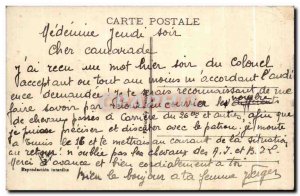 CARTE POSTALE
Médenine Jeudi soir
Cher camarade
j'ai reçu un mot hier soir du Colonel
acceptant ou tout au moins m'accordant l'audi
ence demandée. Je te serais reconnaissant de me
faire savoir par les
de chevaux passés à Carrière du 30ème et autres, afin que
je puisse préciser et discuter avec le patron, je monte
à Tunis le 16 et te mettrai au courant de la situation
au retour. n'oublie pas les chevaux des
Merci d'avance et bien cordialement à toi
Bien le bonjour à ta femme
Reproduction interdite